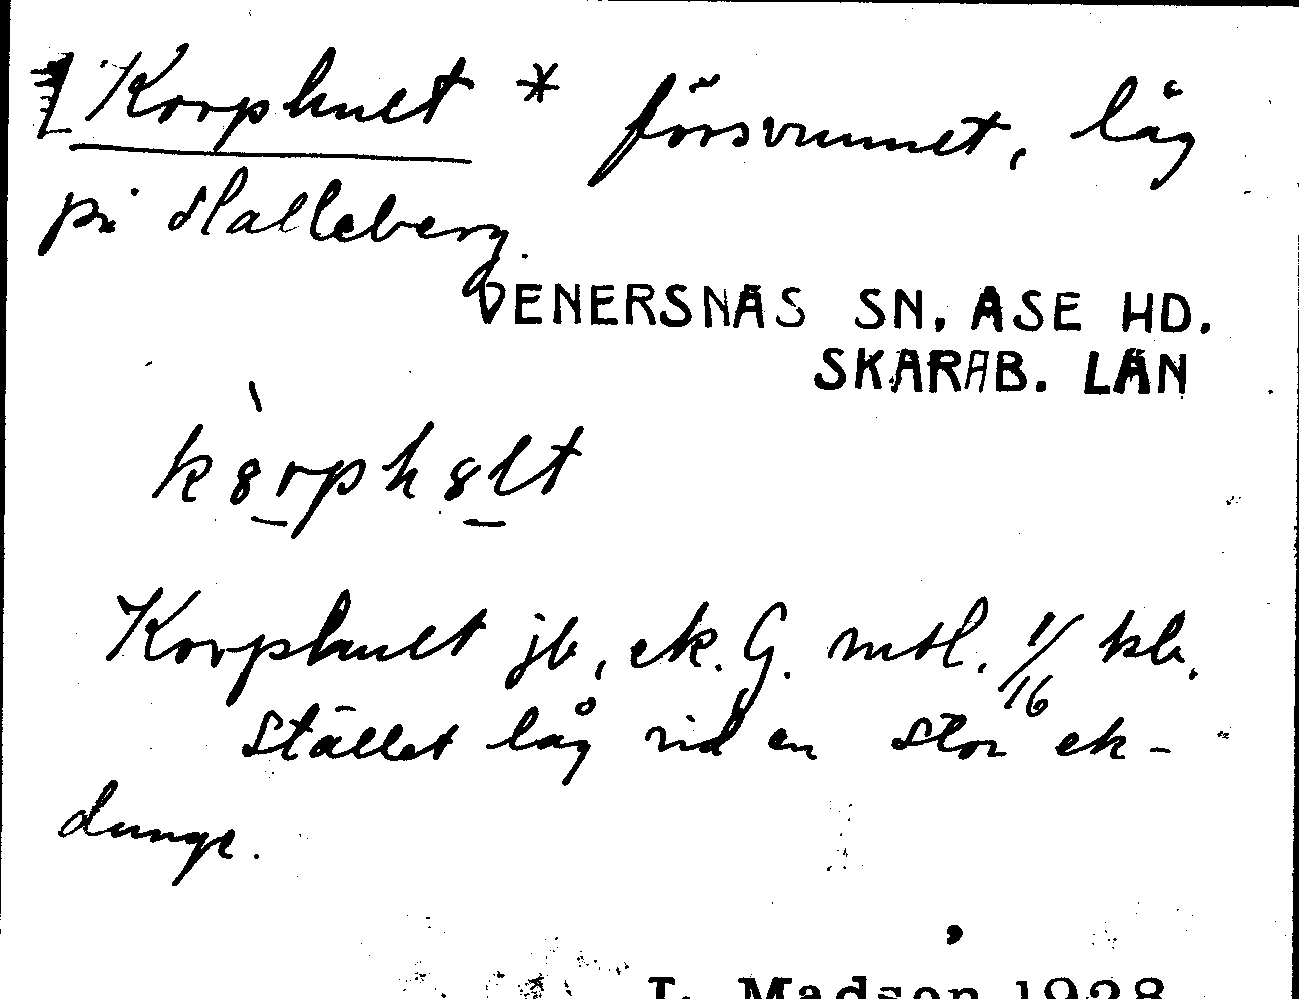 Korphult * försvunnet, låg
på Halleberg.
VENERSNAS SN. ASE HD.
SKARAB. LÄN
k8rph8lt
Korphult jb, ek. G. mtl. 1/16 kb.
Stället låg vid en stor ek-
dunge.
I. Madson 1928